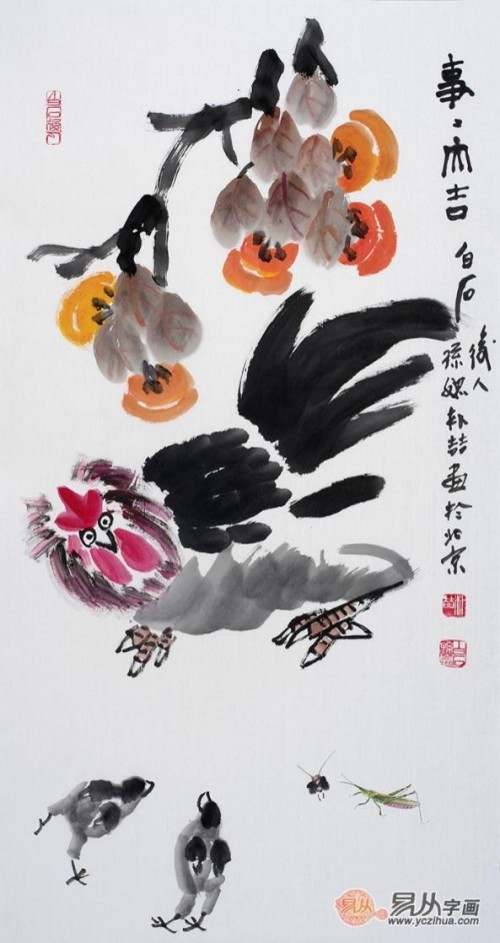 事々大吉
白石
後人
孫媳朴喆画於北京
易从
易从字画
www.yczihua.com